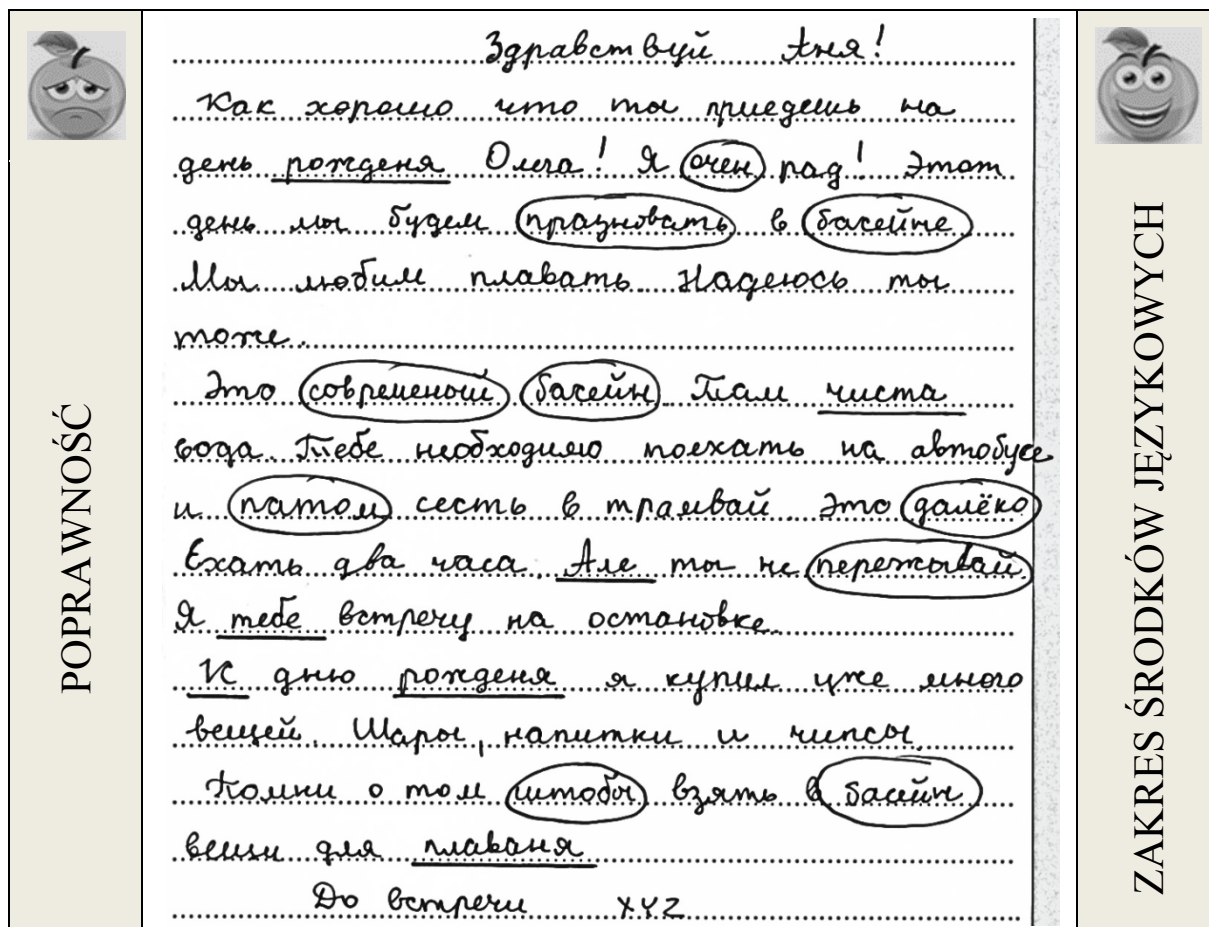 Здравствуй Аня!
Как хорошо что ты приедешь на
день рожденя Олега! Я очен рад! Этот
день мы будем празновать в басейне
Мы любим плавать Надеюсь ты
тоже.
Это современый басейн Там чиста
вода. Тебе необходимо поехать на автобусе
и патом сесть в трамвай Это далёко
Ехать два часа. Але ты не пережывай
Я тебе встречу на остановке.
К дню рожденя я купил уже много
вещей. Шары, напитки и чипсы.
Помни о том штобы взять в басейн
вещи для плаваня
До встречи XYZ
POPRAWNOŚĆ
ZAKRES ŚRODKÓW JĘZYKOWYCH